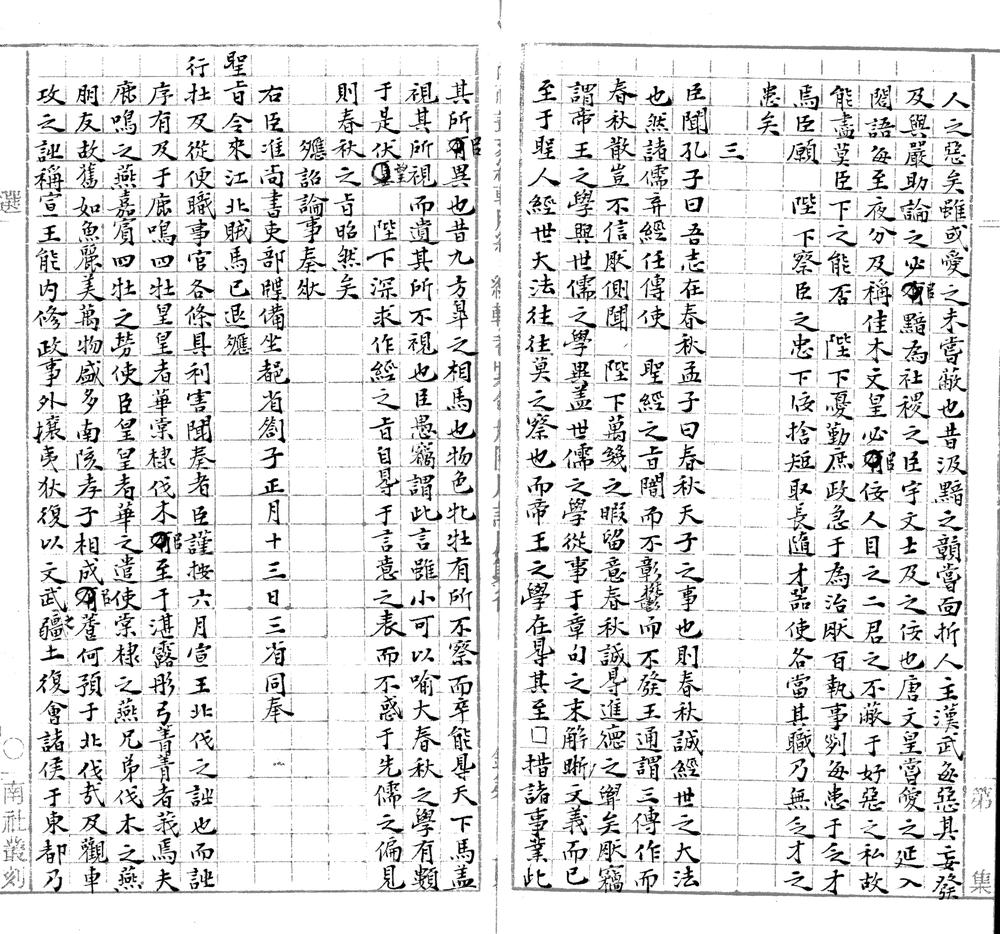 人之惡矣雖或愛之未嘗蔽也昔汲黯之戇嘗面折人主漢武每惡其妄發
及與嚴助論之必曰黯為社稷之臣宇文士及之佞也唐文皇嘗愛之延入
閤語每至夜分及稱佳木文皇必曰佞人目之二君之不蔽于好惡之私故
能盡莫臣下之能否 陛下憂勤庶政急于為治厭百執事則每患于乏才
焉臣願 陛下察臣之忠下佞捨短取長隨才器使各當其職乃無乏才之
患矣
三
臣聞孔子曰吾志在春秋孟子曰春秋天子之事也則春秋誠經世之大法
也然諸儒弃經任傳使 聖經之旨闇而不彰鬱而不發王通謂三傳作而
春秋散豈不信厭側聞 陛下萬幾之暇留意春秋誠得進德之 矣厭竊
謂帝王之學與世儒之學異蓋世儒之學從事于章句之末解晰文義而已
至于聖人經世大法往往莫之察也而帝王之學在得其至□措諸事業此
其所曰異也昔九方臯之相馬也物色牝牡有所不察而卒能得天下馬蓋
視其所視而遺其所不視也臣愚竊謂此言雖小可以喻大春秋之學有類
于是伏望 陛下深求作經之旨自得于言意之表而不惑于先儒之偏見
則春秋之旨昭然矣
應詔論事奏狀
右臣准尚書吏部牒備坐都省劄子正月十三日三省同奉
聖旨令來江北賊馬已退應
行在及從便職事官各條具利害聞奏者臣謹按六月宣王北伐之詩也而詩
序有及于鹿鳴四牡皇皇者華棠棣伐木曰至于湛露彤弓菁菁者莪焉夫
鹿鳴之燕嘉賓四牡之勞使臣皇皇者華之遣使棠棣之燕兄弟伐木之燕
朋友故舊如魚麗美萬物盛多南陔孝子相戒曰養何預于北伐哉及觀車
攻之詩稱宣王能內修政事外攘夷狄復以文武之疆土復會諸侯于東都乃
選
○
南社叢刻
第
集